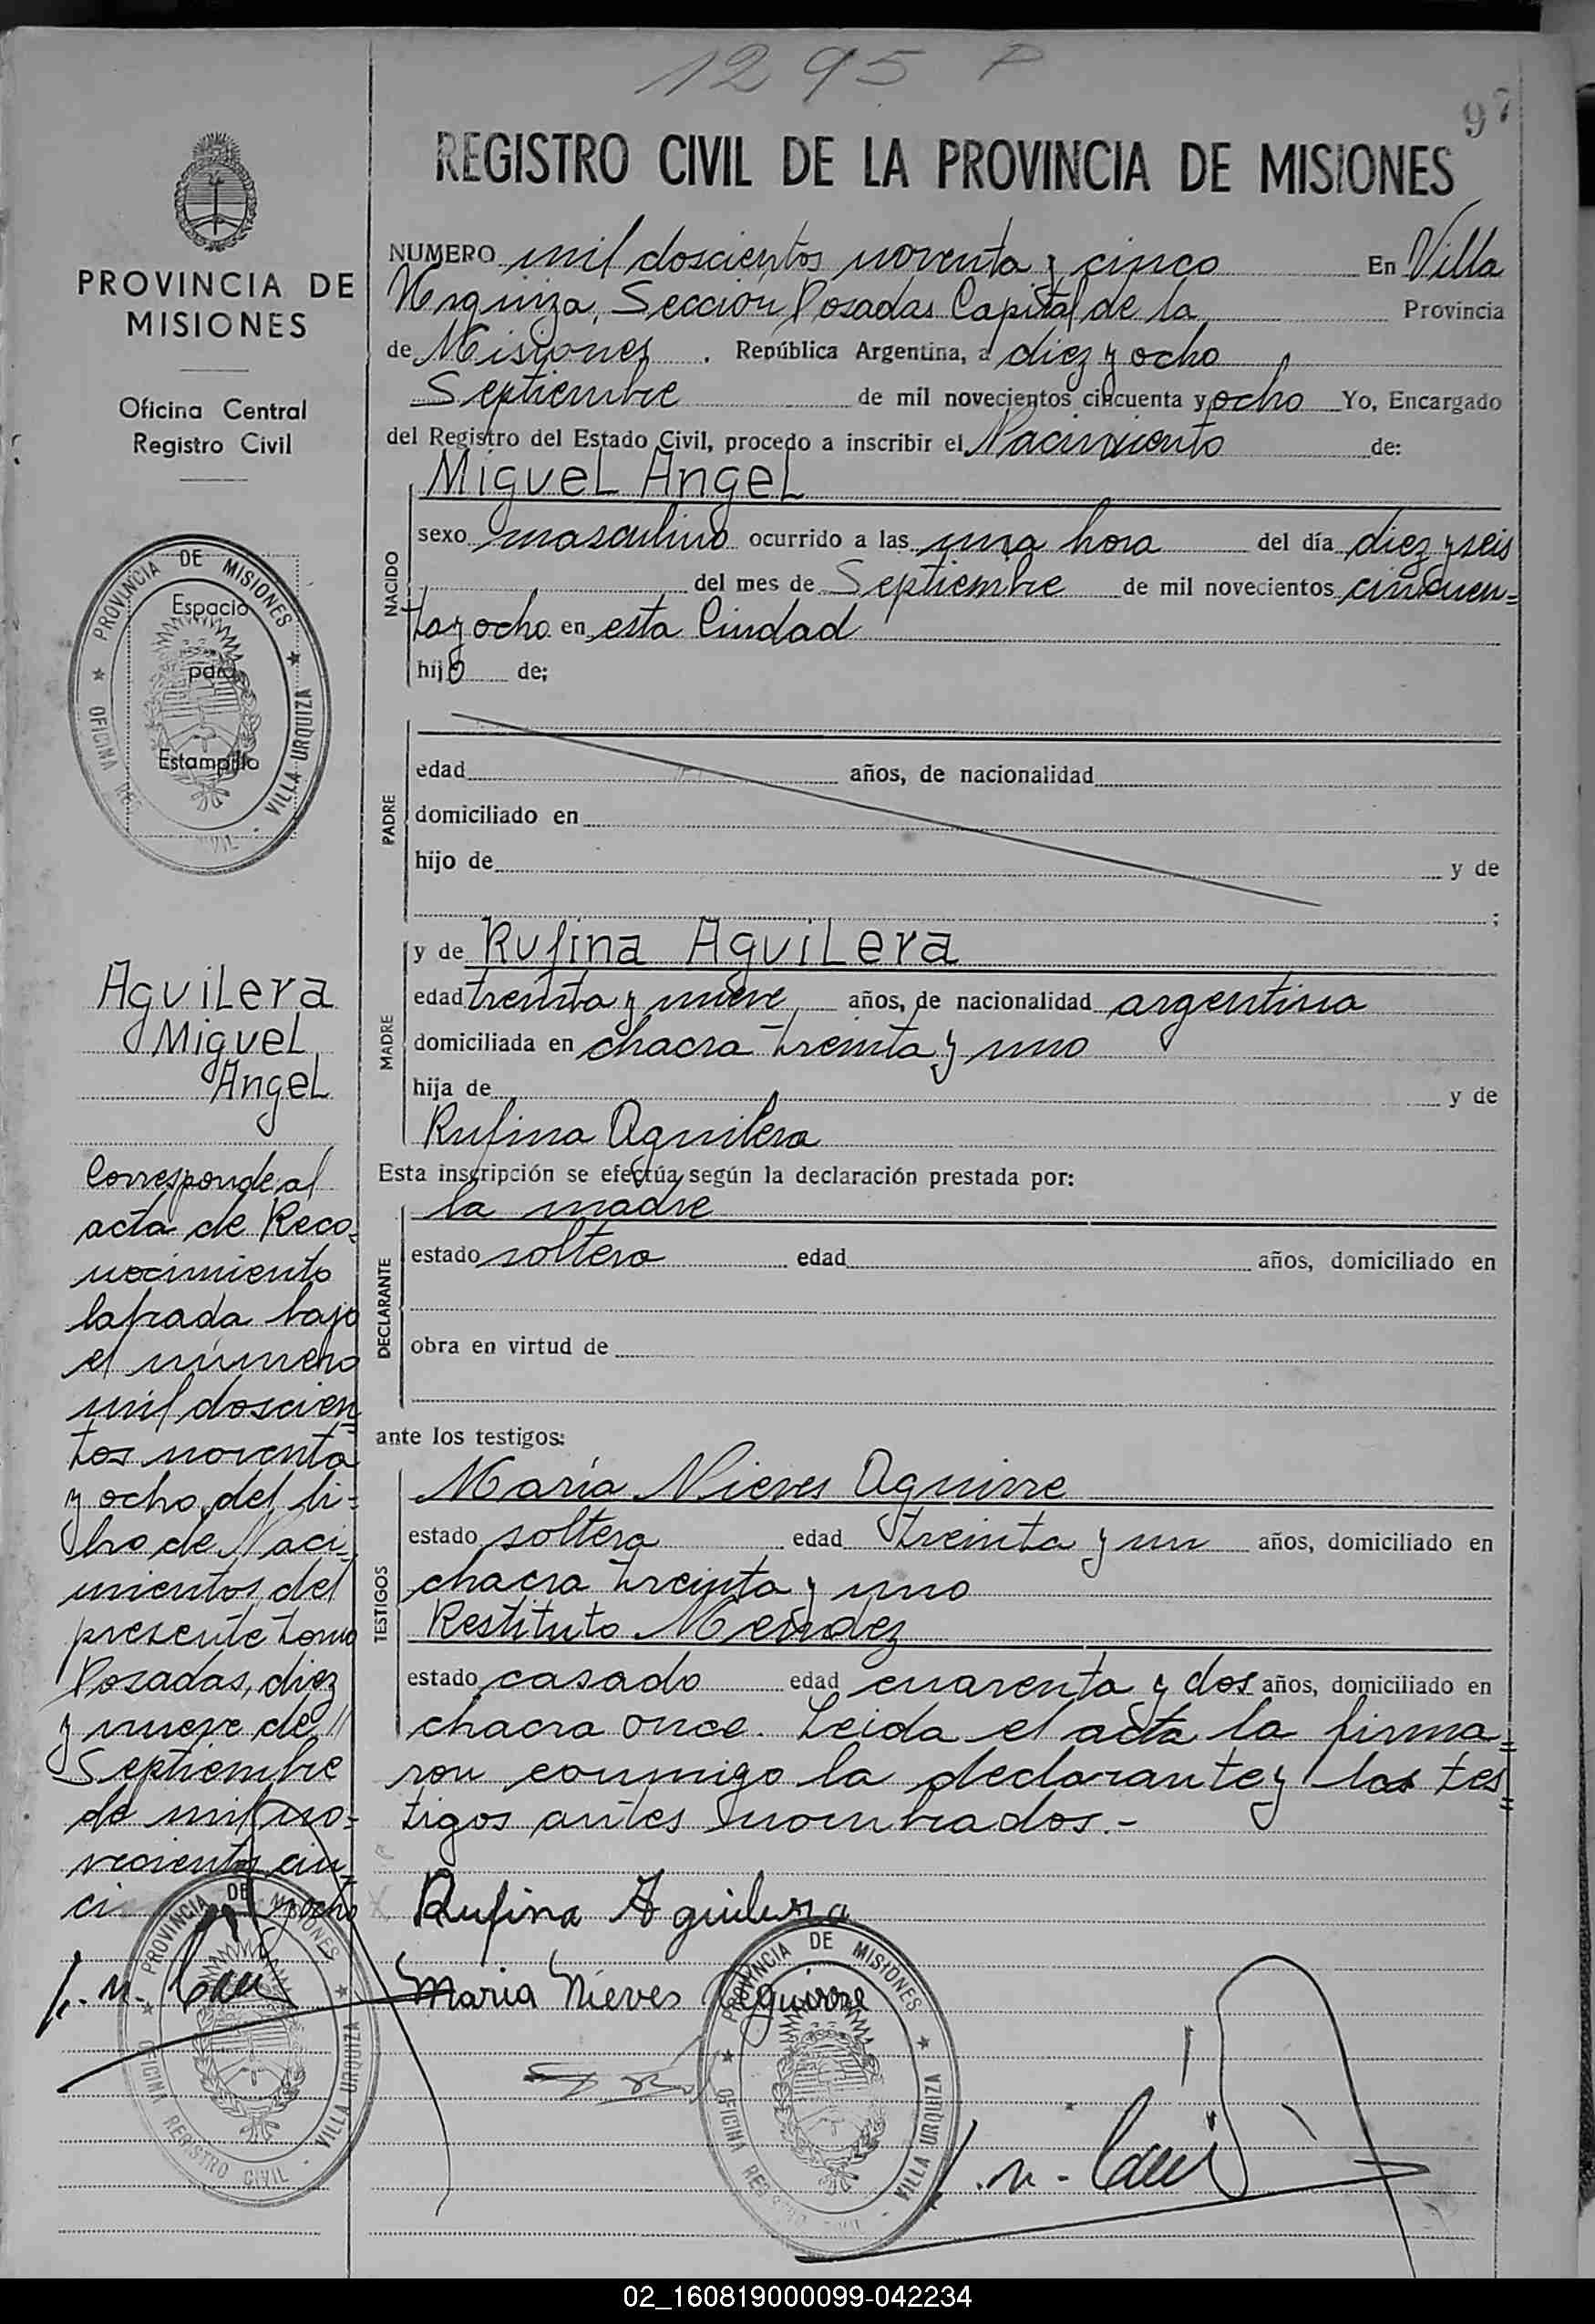 1295 P
97
REGISTRO CIVIL DE LA PROVINCIA DE MISIONES
PROVINCIA DE
MISIONES
Oficina Central
Registro Civil
PROVINCIA DE MISIONES
OFICINA
CIVIL - VILLA URQUIZA
Espacio
para
Estampilla
Aguilera
Miguel
Angel
Corresponde al
acta de Reco-
nocimiento
labrada bajo
el número
mil doscien
tos noventa
y ocho del li-
bro de Naci-
mientos del
presente tomo
Posadas, diez
y nueve de
Septiembre
de mil no-
vecientos cin
y ocho
PROVINCIA DE MISIONES
OFICINA REGISTRO CIVIL - VILLA URQUIZA
NUMERO mil doscientos noventa y cinco En Villa
Urquiza, Sección Posadas Capital de la Provincia
de Misiones . República Argentina, a diez y ocho
Septiembre de mil novecientos cincuenta y ocho Yo, Encargado
del Registro del Estado Civil, procedo a inscribir el Nacimiento de:
NACIDO
Miguel Angel
sexo masculino ocurrido a las una hora del día diez y seis
del mes de Septiembre de mil novecientos cincuen=
ta y ocho en esta Ciudad
hijo de;
PADRE
edad años, de nacionalidad
domiciliado en
hijo de y de
;
MADRE
y de Rufina Aguilera
edad treinta y nueve años, de nacionalidad argentina
domiciliada en chacra treinta y uno
hija de y de
Rufina Aguilera
Esta inscripción se efectúa según la declaración prestada por:
DECLARANTE
la madre
estado soltera edad años, domiciliado en
obra en virtud de
ante los testigos:
TESTIGOS
María Nieves Aguirre
estado soltera edad treinta y un años, domiciliado en
chacra treinta y uno
Restituto Mendez
estado casado edad cuarenta y dos años, domiciliado en
chacra once. Leida el acta la firma=
ron conmigo la declarante y los tes=
tigos antes nombrados.-
Rufina Aguilera
Maria Nieves Aguirre
PROVINCIA DE MISIONES
OFICINA REGISTRO CIVIL - VILLA URQUIZA
02_160819000099-042234